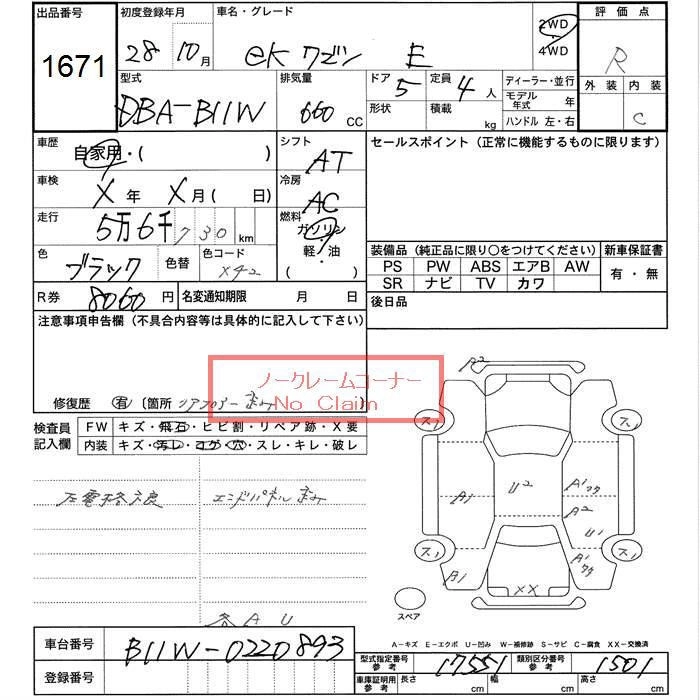 出品番号 初度登録年月 車名・グレード 評価点
1671 28 10月 ekワゴン E 2WD 4WD R
型式 排気量 ドア 5 定員 4人 ディーラー・並行 外装 内装
DBA-B11W 660 CC 形状 積載 kg モデル年式 年 C
ハンドル 左・右
車歴 自家用・( ) シフト AT セールスポイント (正常に機能するものに限ります)
車検 X年 X月( 日) 冷房 AC
走行 5万6千730km 燃料 ガソリン・軽・油 ( )
色 ブラック 色替 色コード X42
装備品 (純正品に限り○をつけてください) 新車保証書
PS PW ABS エアB AW 有・無
SR ナビ TV カワ
R券 8060円 名変通知期限 月 日 後日品
注意事項申告欄 (不具合内容等は具体的に記入して下さい)
ノークレームコーナー
No Claim
修復歴 有 〔箇所 リアフロアー歪み 〕
検査員記入欄 FW キズ・飛石・ヒビ割・リペア跡・X要
内装 キズ・汚レ・コゲ・穴・スレ・キレ・破レ
エンドパネル歪み
各AU
A2
ス1 ス1
A1 U2 A1ワク
A2
U1
ス1 ス1
A1 XX A1ワク
スペア
A-キズ E-エクボ U-凹み W-補修跡 S-サビ C-腐食 XX-交換済
車台番号 B11W-0220893
登録番号
型式指定番号参考 17551 類別区分番号参考 1501
車庫証明用参考 長さ cm 幅 cm 高さ cm